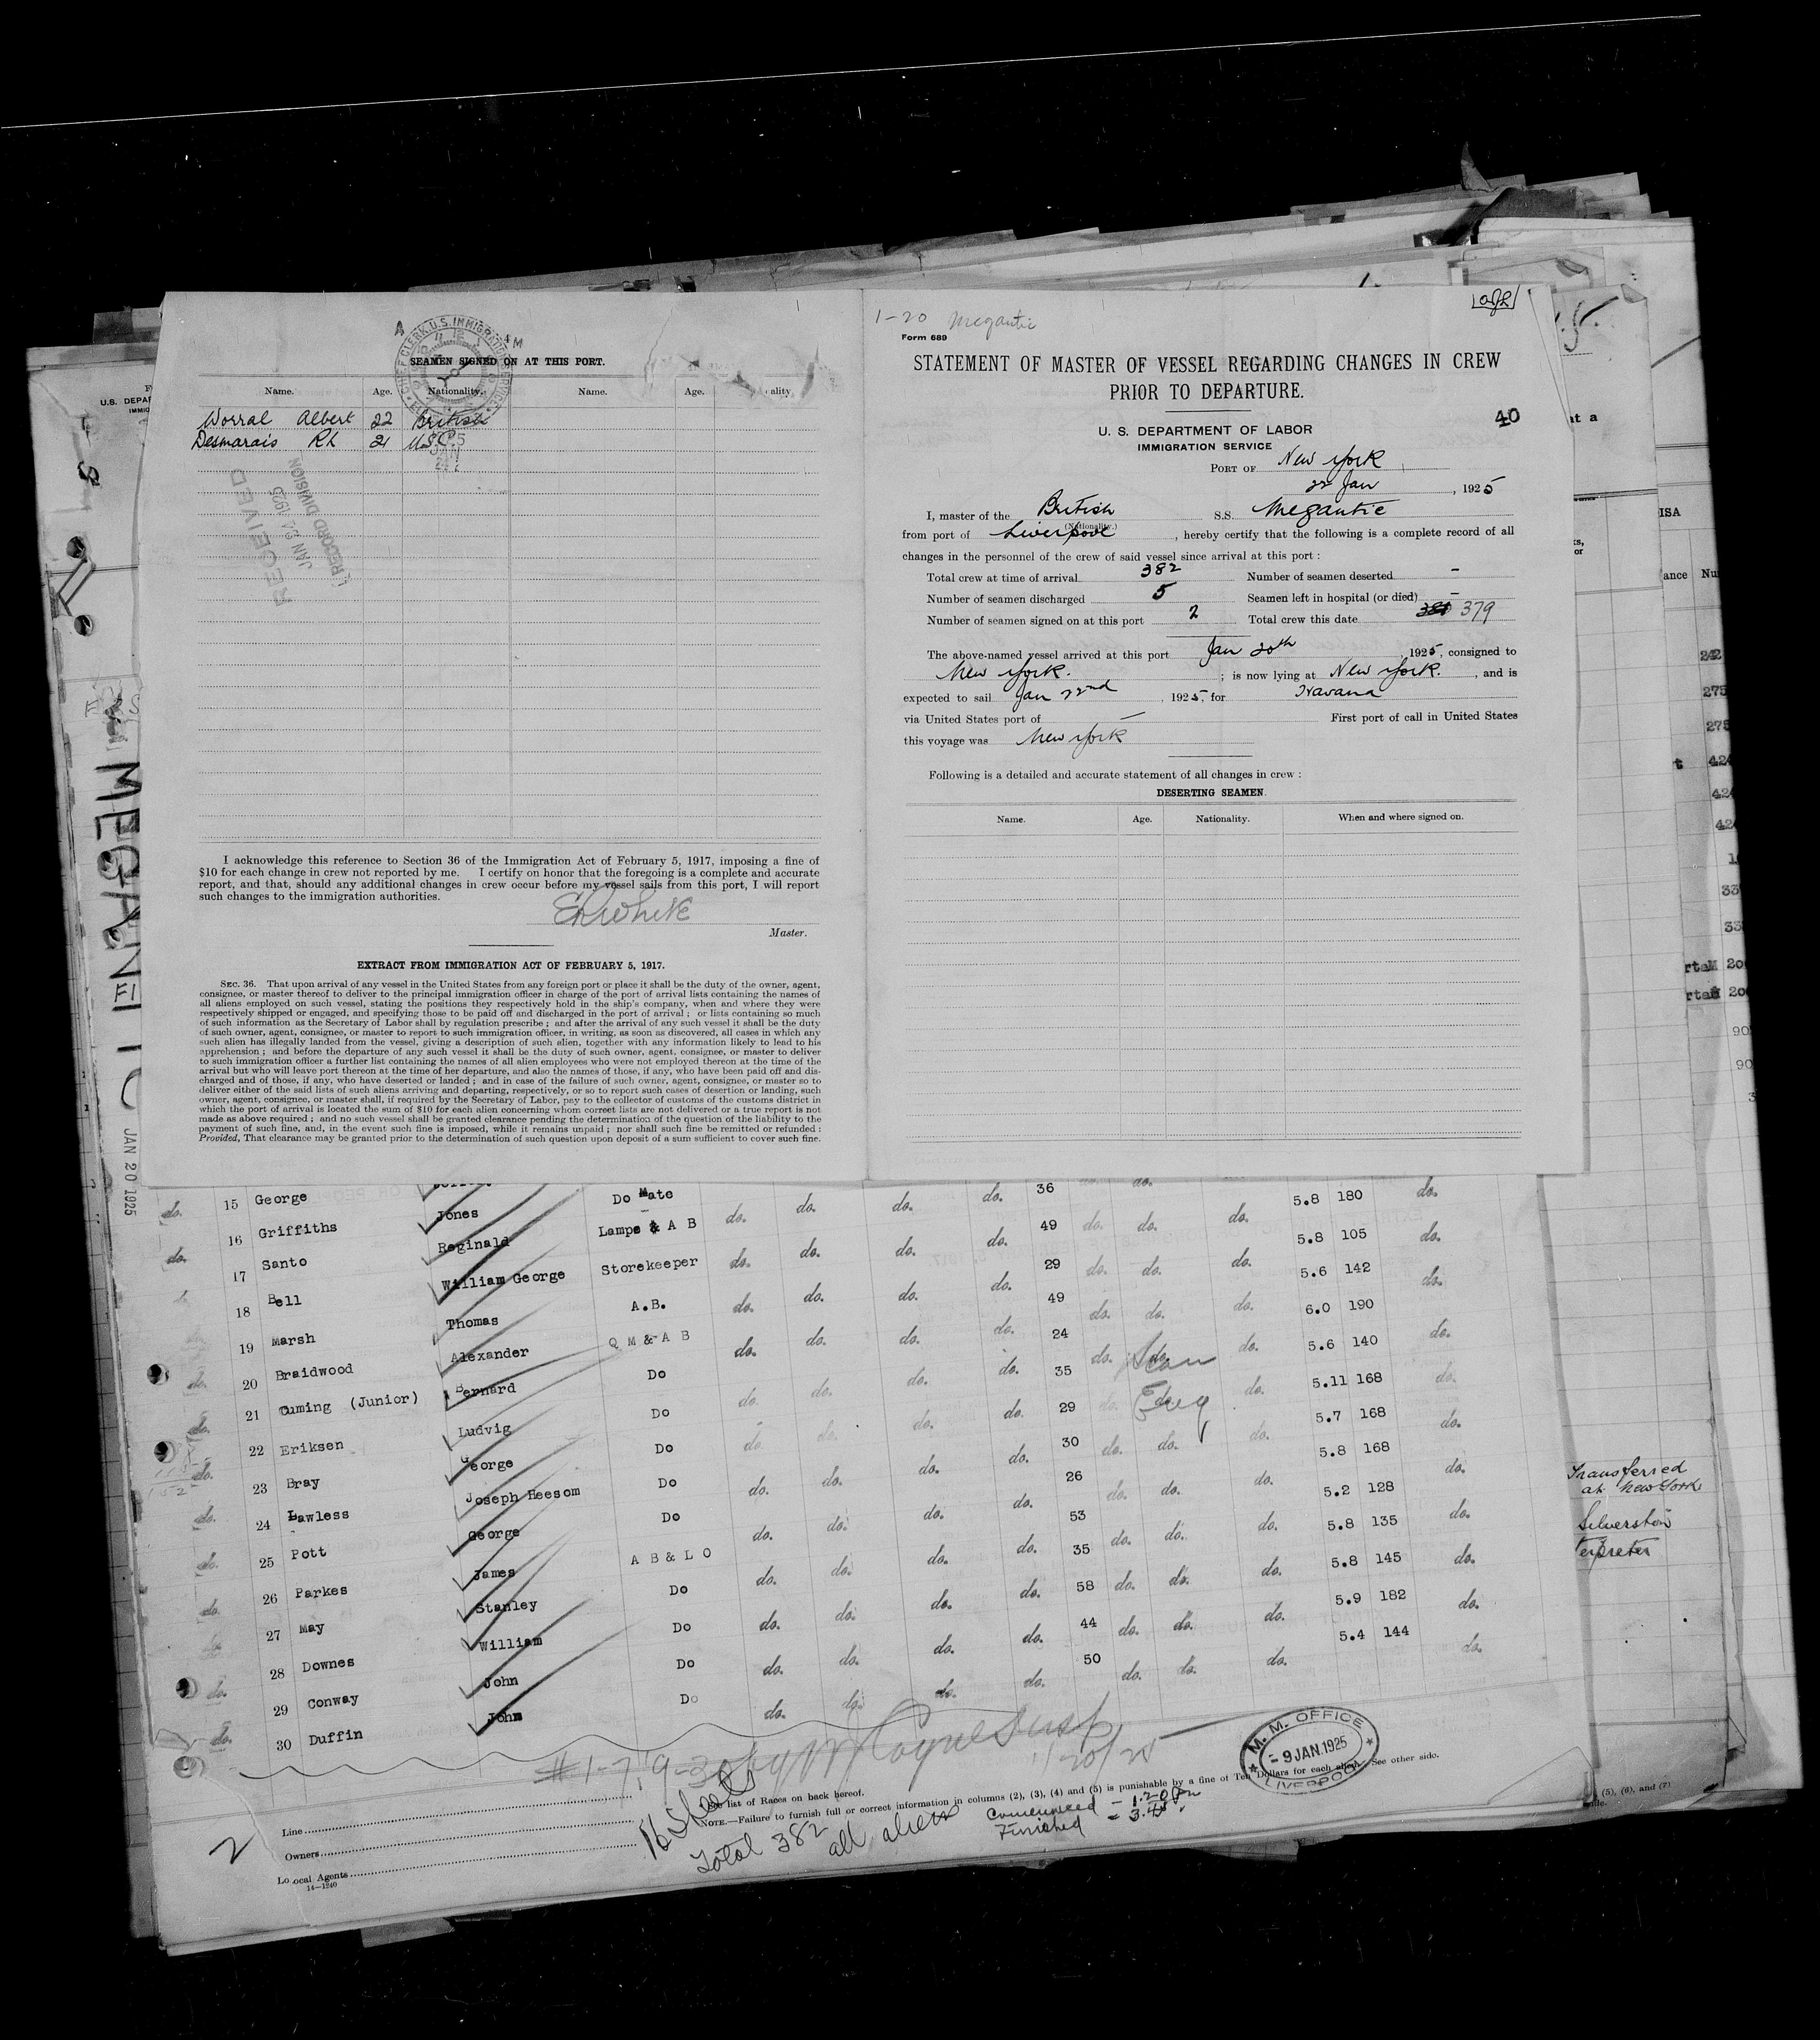 SEAMEN SIGNED ON AT THIS PORT.
Name. Age. Nationality. Name. Age. ality
Worral Albert 22 British
Desmarais RL 21 U.S.C.
RECEIVED
JAN 24 1925
RECORD DIVISION
I acknowledge this reference to Section 36 of the Immigration Act of February 5, 1917, imposing a fine of
$10 for each change in crew not reported by me. I certify on honor that the foregoing is a complete and accurate
report, and that, should any additional changes in crew occur before my vessel sails from this port, I will report
such changes to the immigration authorities.
White
Master.
EXTRACT FROM IMMIGRATION ACT OF FEBRUARY 5, 1917.
SEC. 36. That upon arrival of any vessel in the United States from any foreign port or place it shall be the duty of the owner, agent,
consignee, or master thereof to deliver to the principal immigration officer in charge of the port of arrival lists containing the names of
all aliens employed on such vessel, stating the positions they respectively hold in the ship's company, when and where they were
respectively shipped or engaged, and specifying those to be paid off and discharged in the port of arrival; or lists containing so much
of such information as the Secretary of Labor shall by regulation prescribe; and after the arrival of any such vessel it shall be the duty
of such owner, agent, consignee, or master to report to such immigration officer, in writing, as soon as discovered, all cases in which any
such alien has illegally landed from the vessel, giving a description of such alien, together with any information likely to lead to his
apprehension; and before the departure of any such vessel it shall be the duty of such owner, agent, consignee, or master to deliver
to such immigration officer a further list containing the names of all alien employees who were not employed thereon at the time of the
arrival but who will leave port thereon at the time of her departure, and also the names of those, if any, who have been paid off and dis-
charged and of those, if any, who have deserted or landed; and in case of the failure of such owner, agent, consignee, or master so to
deliver either of the said lists of such aliens arriving and departing, respectively, or so to report such cases of desertion or landing, such
owner, agent, consignee, or master shall, if required by the Secretary of Labor, pay to the collector of customs of the customs district in
which the port of arrival is located the sum of $10 for each alien concerning whom correct lists are not delivered or a true report is not
made as above required; and no such vessel shall be granted clearance pending the determination of the question of the liability to the
payment of such fine, and, in the event such fine is imposed, while it remains unpaid; nor shall such fine be remitted or refunded:
Provided, That clearance may be granted prior to the determination of such question upon deposit of a sum sufficient to cover such fine.
1-20 Megantic
Form 689
STATEMENT OF MASTER OF VESSEL REGARDING CHANGES IN CREW
PRIOR TO DEPARTURE.
40
U. S. DEPARTMENT OF LABOR
IMMIGRATION SERVICE
PORT OF New York
22 Jan, 1925
I, master of the British S.S. Megantic
(Nationality.)
from port of Liverpool, hereby certify that the following is a complete record of all
changes in the personnel of the crew of said vessel since arrival at this port:
Total crew at time of arrival 382 Number of seamen deserted -
Number of seamen discharged 5 Seamen left in hospital (or died) -
Number of seamen signed on at this port 2 Total crew this date 379
The above-named vessel arrived at this port Jan 20th, 1925, consigned to
New York.; is now lying at New York., and is
expected to sail Jan 22nd, 1925, for Havana
via United States port of — First port of call in United States
this voyage was New York
Following is a detailed and accurate statement of all changes in crew:
DESERTING SEAMEN.
Name. Age. Nationality. When and where signed on.
MEGANTIC
JAN 20 1925
15 George Do Mate do. do. do. 36 do. do. 5.8 180 do.
16 Griffiths Jones Lamps & A B do. do. do. do. 49 do. do. do. 5.8 105 do.
17 Santo Reginald Storekeeper do. do. do. do. 29 do. do. do. 5.6 142 do.
18 Bell William George A.B. do. do. do. do. 49 do. do. do. 6.0 190
19 Marsh Thomas Q M & A B do. do. do. do. 24 do. do. do. 5.6 140 do.
20 Braidwood Alexander Do do. do. do. do. 35 do. Scan do. 5.11 168 do.
21 Cuming (Junior) Bernard Do do. do. do. do. 29 do. Eng do. 5.7 168 do.
22 Eriksen Ludvig Do do. do. do. do. 30 do. do. do. 5.8 168 do.
23 Bray George Do do. do. do. do. 26 do. do. do. 5.2 128 do.
24 Lawless Joseph Heesom Do do. do. do. do. 53 do. do. do. 5.8 135 do.
25 Pott George A B & L O do. do. do. do. 35 do. do. do. 5.8 145 do.
26 Parkes James Do do. do. do. do. 58 do. do. do. 5.9 182 do.
27 May Stanley Do do. do. do. do. 44 do. do. do. 5.4 144 do.
28 Downes William Do do. do. do. do. 50 do. do. do.
29 Conway John Do do. do. do.
30 Duffin John
Transferred
at New York
Silverston
erpreter
1/20/25
M.M. OFFICE
9 JAN. 1925
LIVERPOOL
Line
Owners
Local Agents
14—1240
2
See list of Races on back hereof.
NOTE.—Failure to furnish full or correct information in columns (2), (3), (4) and (5) is punishable by a fine of Ten Dollars for each alien. See other side.
16 Sheets
Total 382
all aliens
Commenced - 1.20 Pm
Finished = 3.45 P.